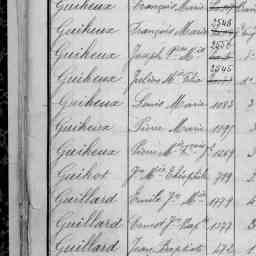 Guiheux François Marie
Guiheux François Marie 2548
Guiheux Joseph Pre Mie 2556
Guiheux Julien Mie 2545
Guiheux Louis Marie 1083 3
Guiheux Pierre Marie 3
Guiheux Pierre Mie 1
Guihot Jn Mie Théophile 799 2
Guillard Emile Jn Mie 1179 4
Guillard Ernest Jn Bapt 1177 3
Guillard Jean Baptiste 472 1